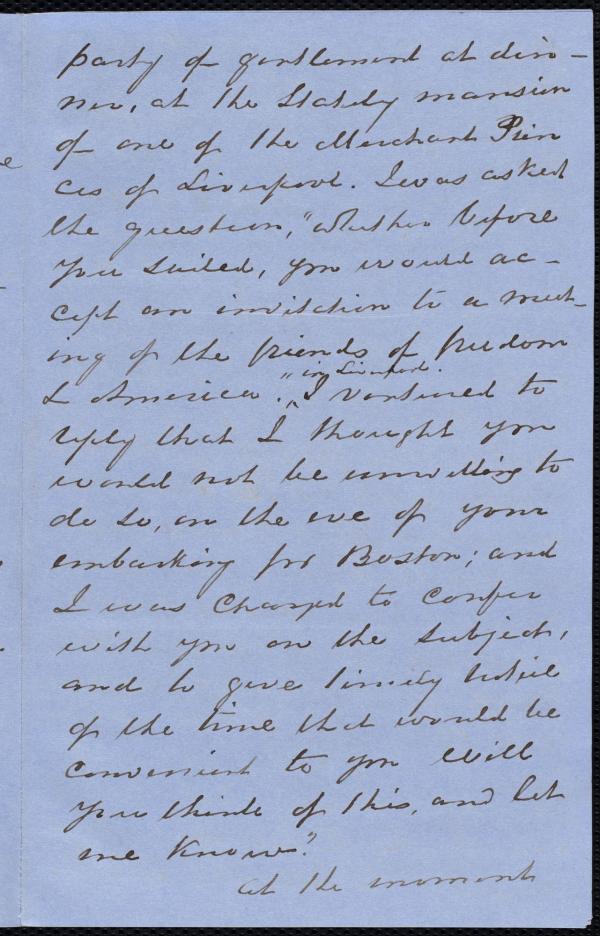 party of gentlemen at din-
ner, at the stately mansion
of one of the Merchant Prin
ces of Liverpool. I was asked
the question, "Whether before
you sailed, you would ac-
cept an invitation to a meet-
ing of the friends of freedom
in Liverpool.
& America." I ventured to
reply that I thought you
would not be unwilling to
do so, on the eve of your
embarking for Boston; and
I was charged to confer
with you on the subject,
and to give timely notice
of the time that would be
convenient to you Will
you think of this, and let
me know?
at the moment